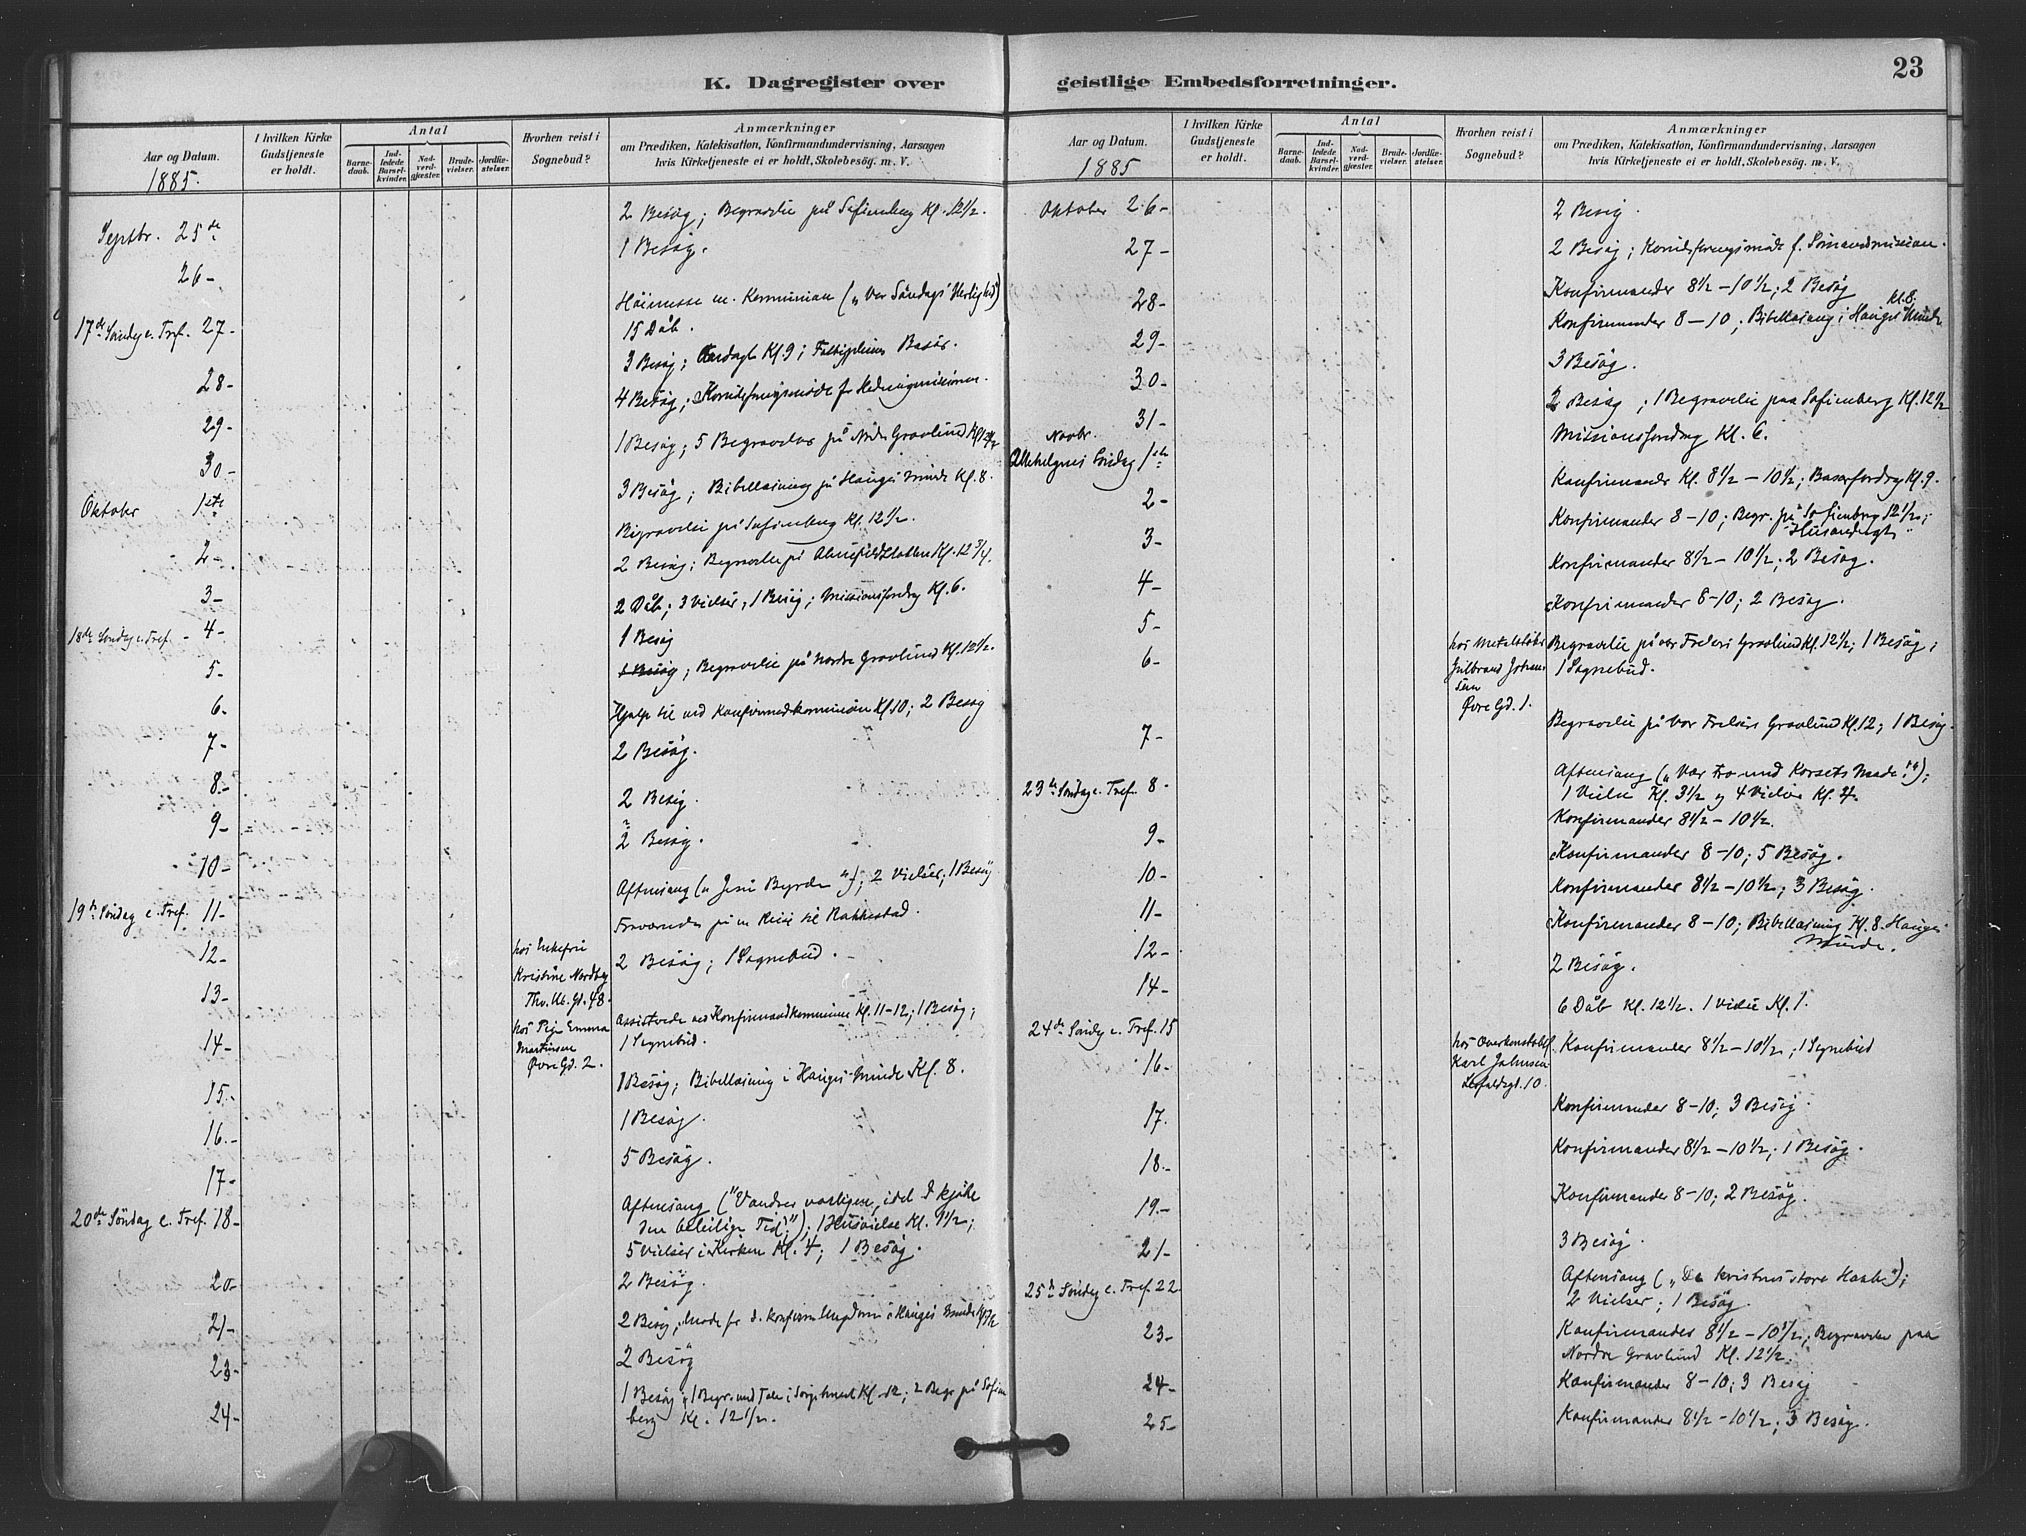 K. Dagregister over
Aar og Datum.
1885.
I hvilken Kirke Gudstjeneste er holdt.
Antal
Barnedaab.
Indledede Barselkvinder.
Nadverdgjæster.
Brudevielser.
Jordfæstelser.
Hvorhen reist i Sognebud?
Anmærkninger
om Prædiken, Katekisation, Konfirmandundervisning, Aarsagen
hvis Kirketjeneste ei er holdt, Skolebesög. m. V.
Septbr. 25de 2 Besøg; Begravelse på Sofienberg Kl. 12½.
26- 1 Besøg.
17de Søndag e. Tref. 27- Høimesse m. Kommunion („Vor Søndags Herlighed")
15 Dåb.
28- 3 Besøg; Andagt Kl. 9 i Basar.
29- 4 Besøg;
30- 1 Besøg; 5 Begravelser på Nordre Gravlund Kl. 12½
Oktober 1ste 3 Besøg; Bibellæsning på Hauges Minde Kl. 8.
2- Begravelse på Sofienberg Kl. 12½.
3- 2 Besøg; Begravelse på Kl. 12¾.
18de Søndag e. Tref. - 4- 2 Dåb; 3 Vielser, 1 Besøg; Missionsforedrag Kl. 6.
5- 1 Besøg
6- 1 Besøg; Begravelse på Nordre Gravlund Kl. 12½.
7- Hjalp til ved Konfirmandkommunion Kl. 10; 2 Besøg
8- 2 Besøg.
9- 2 Besøg.
10- 2 Besøg.
19de Søndag e. Tref. 11- Aftensang („Jesu Byrde"); 2 Vielser; 1 Besøg
12- Fraværende på en Reise til Rakkestad.
13- hos Enkefru
Kristine Nordby
Thv. M. Gd. 48.
2 Besøg; 1 Sognebud.
14- hos Pige Emma
Martinsen
Øvre Gd. 2.
Assisterede ved Konfirmandkommunion Kl. 11-12; 1 Besøg;
1 Sognebud.
15- 1 Besøg; Bibellæsning i Hauges Minde Kl. 8.
16- 1 Besøg.
17- 5 Besøg.
20de Søndag e. Tref. 18- Aftensang ("Vandrer varligen, idet I kjøbe
den beleilige Tid!"); 1 Husvielse Kl.
5 Vielser i Kirken Kl. 4; 1 Besøg.
20- 2 Besøg.
21- 2 Besøg; Møde for d. konfirm. Ungdom i Hauges Minde
23- 2 Besøg
24- 1 Besøg; 1 Begr. med Tale i Kl. 12; 2 Begr. på Sofien
berg Kl. 12½.
geistlige Embedsforretninger.
23
Aar og Datum.
1885
I hvilken Kirke Gudstjeneste er holdt.
Antal
Barnedaab.
Indledede Barselkvinder.
Nadverdgjæster.
Brudevielser.
Jordfæstelser.
Hvorhen reist i Sognebud?
Anmærkninger
om Prædiken, Katekisation, Konfirmandundervisning, Aarsagen
hvis Kirketjeneste ei er holdt, Skolebesög. m. V.
Oktober 26- 2 Besøg.
27- 2 Besøg; f. Sømandsmission.
28- Konfirmander 8½-10½; 2 Besøg
29- Konfirmander 8-10; Bibellæsning i Hauges Minde Kl. 8.
30- 3 Besøg.
31- 2 Besøg; 1 Begravelse paa Sofienberg Kl. 12½
Novbr.
Allehelgens Søndag 1ste Missionsforedrag Kl. 6.
2- Konfirmander Kl. 8½-10½; Basarforedrag Kl. 9.
3- Konfirmander 8-10; Begr. på Sofienberg 12½;
Husandagt
4- Konfirmander 8½-10½; 2 Besøg.
5- Konfirmander 8-10; 2 Besøg.
6- hos
Gulbrand Johan
sen
Øvre Gd. 1.
Begravelse på vor Frelsers Gravlund Kl. 12½; 1 Besøg;
1 Sognebud.
7- Begravelse på Vor Frelsers Gravlund Kl. 12; 1 Besøg.
23de Søndag e. Tref. 8- Aftensang („Vær tro mod Korsets!");
1 Vielse Kl. 3½ og 4 Vielser Kl. 4.
9- Konfirmander 8½-10½.
10- Konfirmander 8-10; 5 Besøg.
11- Konfirmander 8½-10½; 3 Besøg.
12- Konfirmander 8-10; Bibellæsning Kl. 8. Hauges
Minde.
14- 2 Besøg.
24de Søndag e. Tref. 15 6 Dåb Kl. 12½. 1 Vielse Kl. 1.
16- hos Overkonstabel
Karl Johnsen
10.
Konfirmander 8½-10½; 1 Sognebud
17. Konfirmander 8-10; 3 Besøg.
18- Konfirmander 8½-10½; 1 Besøg.
19- Konfirmander 8-10; 2 Besøg.
21- 3 Besøg.
25de Søndag e. Tref. 22 Aftensang („De kristnes store Haab");
2 Vielser; 1 Besøg.
23- Konfirmander 8½-10½; Begravelse paa
Nordre Gravlund Kl. 12½.
24- Konfirmander 8-10; 3 Besøg
25- Konfirmander 8½-10½; 3 Besøg.